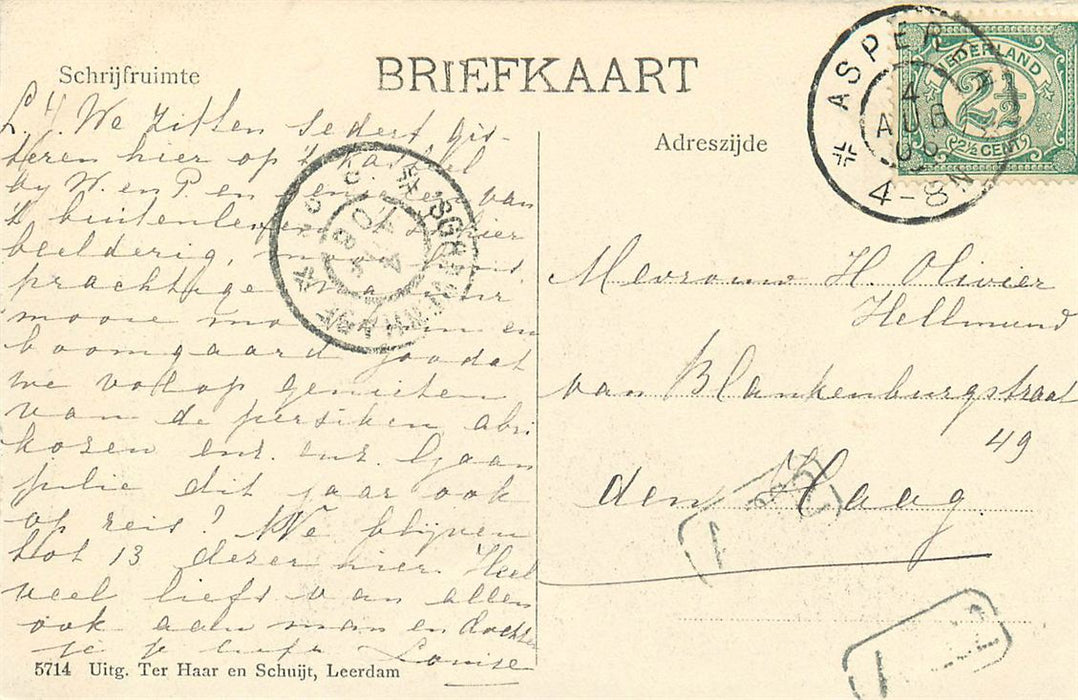 Schrijfruimte
BRIEFKAART
Adreszijde
ASPER
4
AUG
06
4-8N
NEDERLAND
2½
2½ CENT
L. H. We zitten sedert gis-
teren hier op 't kasteel
by W. en P. en van
't buitenleven hier
beelderig,
prachtige
mooie en
boomgaard zoodat
we volop genieten
van de persiken abri-
kozen enz. enz. Gaan
jullie dit jaar ook
op reis? We blijven
tot 13 dezer hier. Heel
veel liefs van allen
ook aan man en dochter
je Louise
Mevrouw H. Olivier
Hellmund
van Blankenburgstraat
49
den Haag.
5714 Uitg. Ter Haar en Schuijt, Leerdam